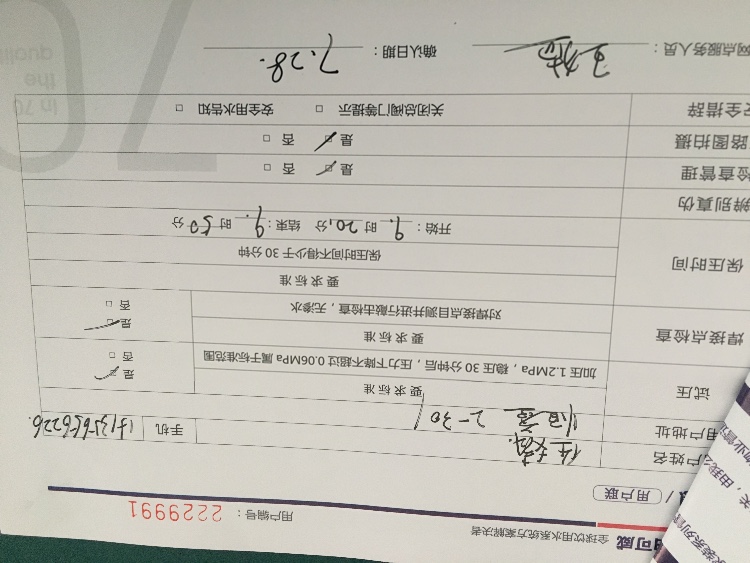 可威 全球饮用水系统方案解决者
用户联 用户编号：2229991
户姓名
用户地址 2-30
手机
试压 要求标准
加压1.2MPa，稳压30分钟后，压力下降不超过0.06MPa属于标准范围
是 否
焊接点检查 要求标准
对焊接点目测并进行敲击检查，无渗水
是 否
保压时间 要求标准
保压时间不得少于30分钟
开始：9.时20分 结束：9.时50分
辨别真伪
检查管理 是 否
路图拍摄 是 否
全措辞 关闭总阀门等提示 安全用水告知
网点服务人员： 确认日期：7.28.
in 70
the
quality
70